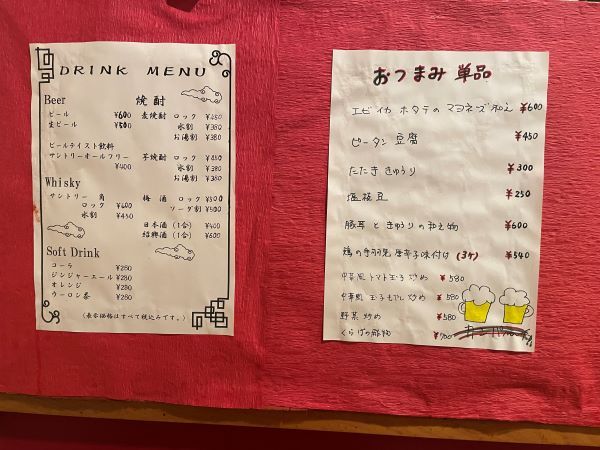 DRINK MENU
Beer
ビール ¥600
生ビール ¥500
ビールテイスト飲料
サントリーオールフリー
¥400
Whisky
サントリー 角
ロック ¥400
水割 ¥450
Soft Drink
コーラ ¥280
ジンジャーエール ¥280
オレンジ ¥280
ウーロン茶 ¥280
焼酎
麦焼酎 ロック ¥450
水割 ¥380
お湯割 ¥380
芋焼酎 ロック ¥450
水割 ¥380
お湯割 ¥380
梅酒 ロック ¥500
ソーダ割 ¥500
日本酒 (1合) ¥400
紹興酒 (1合) ¥600
(表示価格はすべて税込みです。)
おつまみ 単品
エビイカ ホタテの マヨネーズ和え ¥600
ピータン 豆腐 ¥450
たたき きゅうり ¥300
塩枝豆 ¥250
豚耳 と きゅうり の 和え物 ¥600
鶏の手羽先 唐辛子味付け (3ケ) ¥540
中華風 トマト玉子 炒め ¥580
中華風 玉子もやし 炒め ¥580
野菜 炒め ¥580
くらげの酢物 ¥700